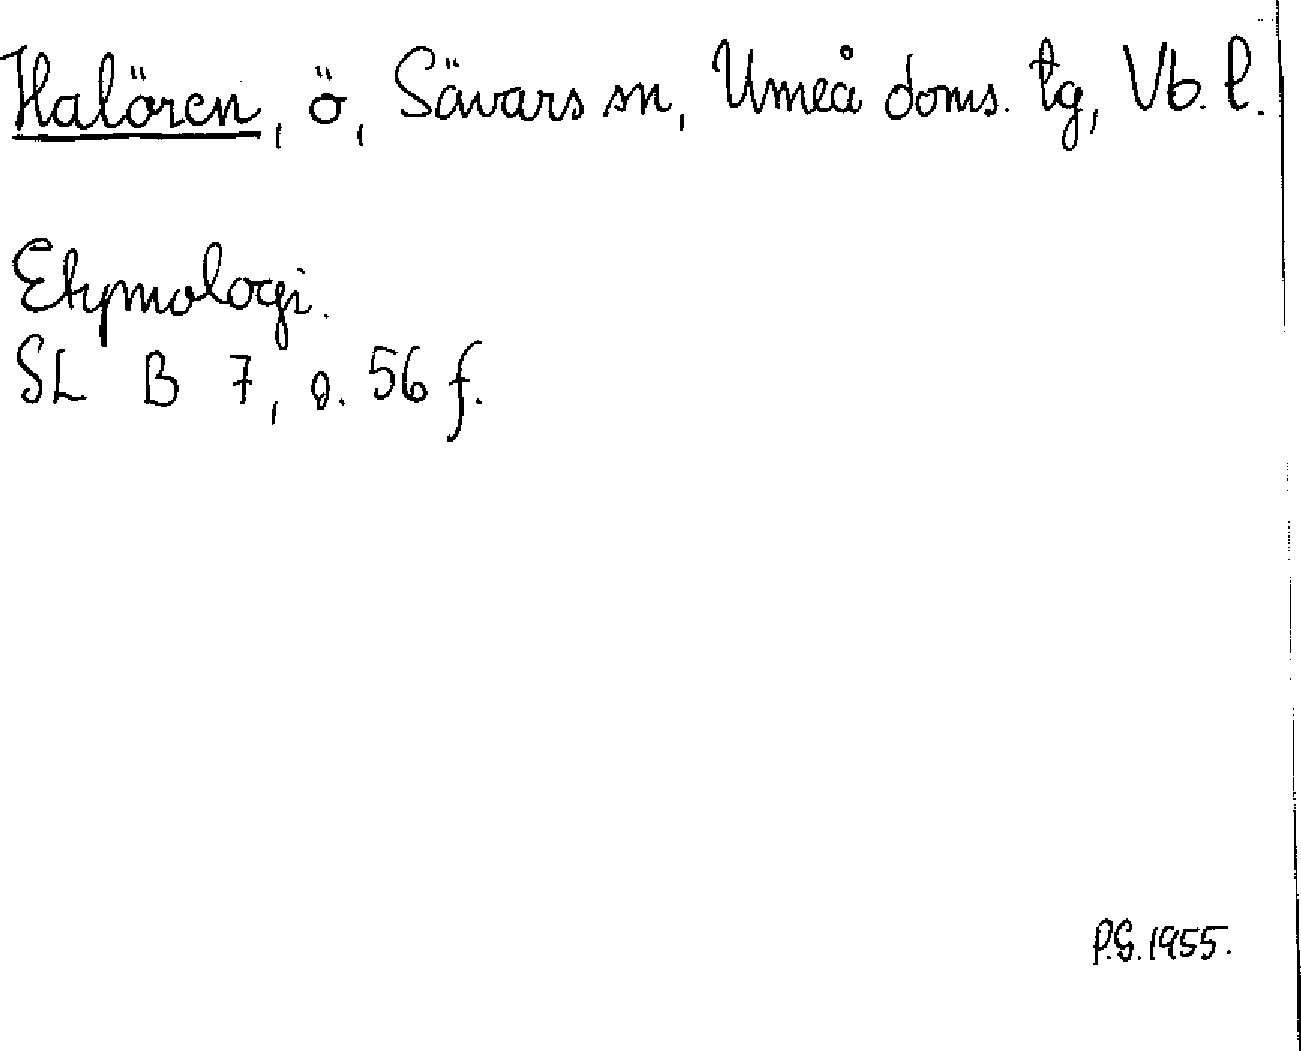 Halören, ö, Sävars sn, Umeå doms. tg, Vb. l.
Etymologi.
SL B 7, s. 56 f.
P.G. 1955.